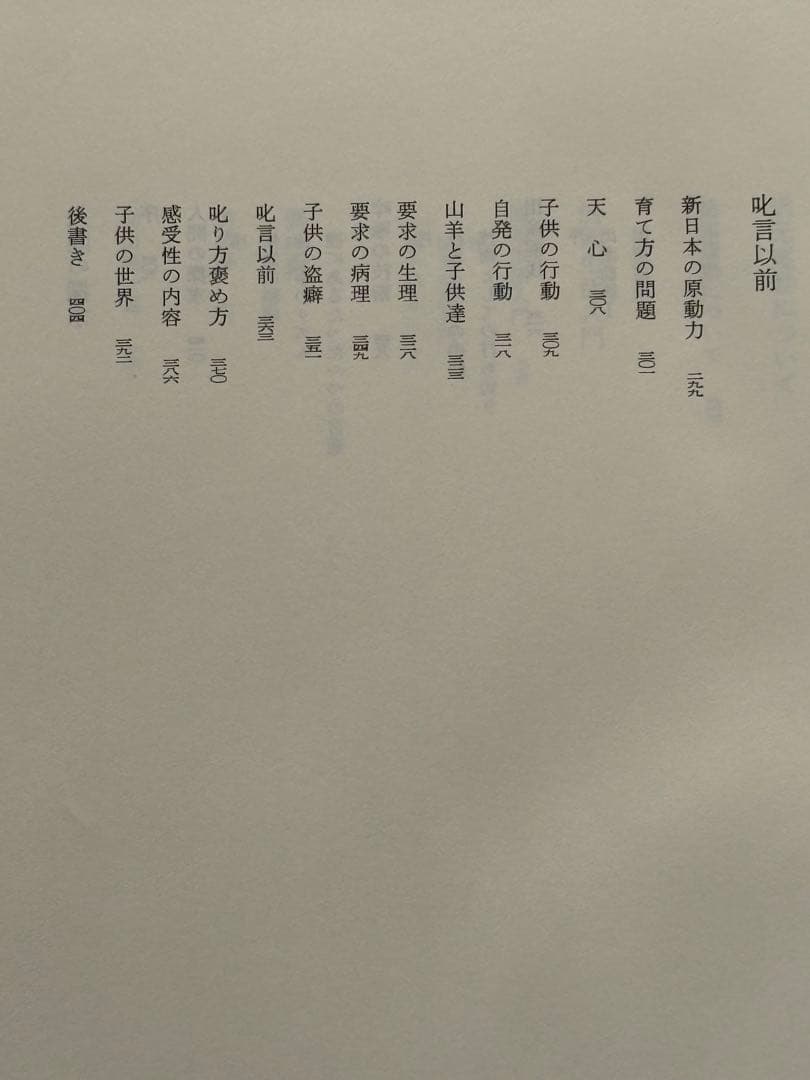 叱言以前
新日本の原動力 二九九
育て方の問題 三〇一
天心 三〇八
子供の行動 三〇九
自発の行動 三一八
山羊と子供達 三二三
要求の生理 三三八
要求の病理 三四九
子供の盗癖 三五一
叱言以前 三六三
叱り方褒め方 三七〇
感受性の内容 三八六
子供の世界 三九二
後書き 四〇四